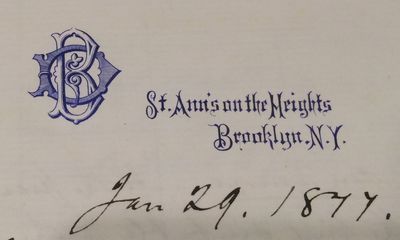 St. Ann's on the Heights
Brooklyn. N.Y.
Jan 29. 1877.